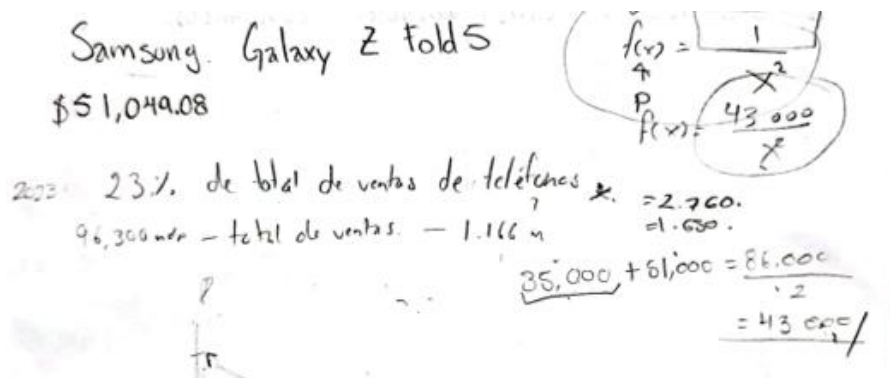 Samsung. Galaxy Z Fold5
$51,049.08
f(x) = 1
x²
P
f(x) = 43 000
x²
2023 23%. de total de ventas de teléfonos
= 2.760.
= 1.650.
96,300 mdp - total de ventas. - 1.166 m
35,000 + 51,000 = 86.000
2
= 43 000